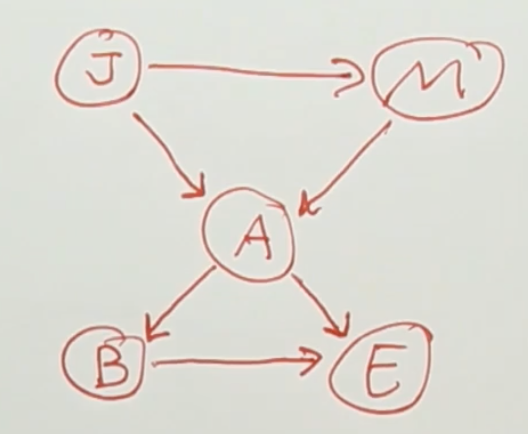 J M
A
B E